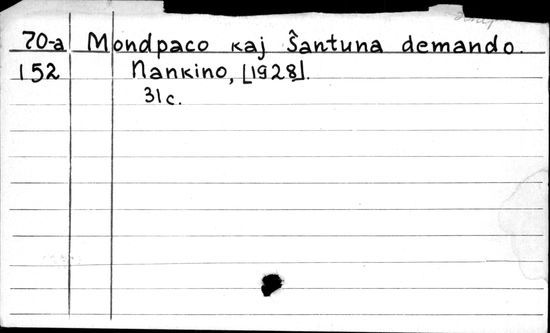 70-a Mondpaco kaj Ŝantuna demando.
152 Nankino, [1928].
31c.